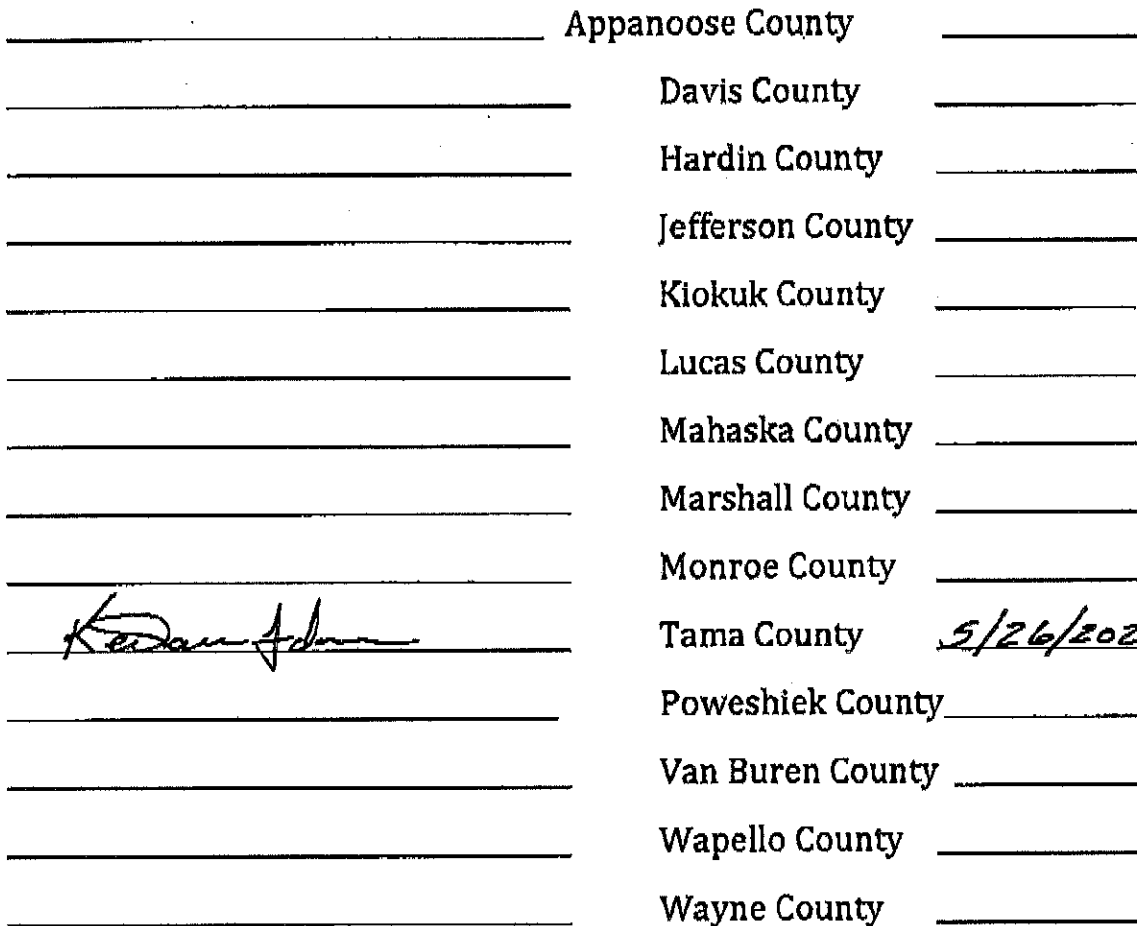 Appanoose County
Davis County
Hardin County
Jefferson County
Kiokuk County
Lucas County
Mahaska County
Marshall County
Monroe County
Tama County 5/26/202
Poweshiek County
Van Buren County
Wapello County
Wayne County